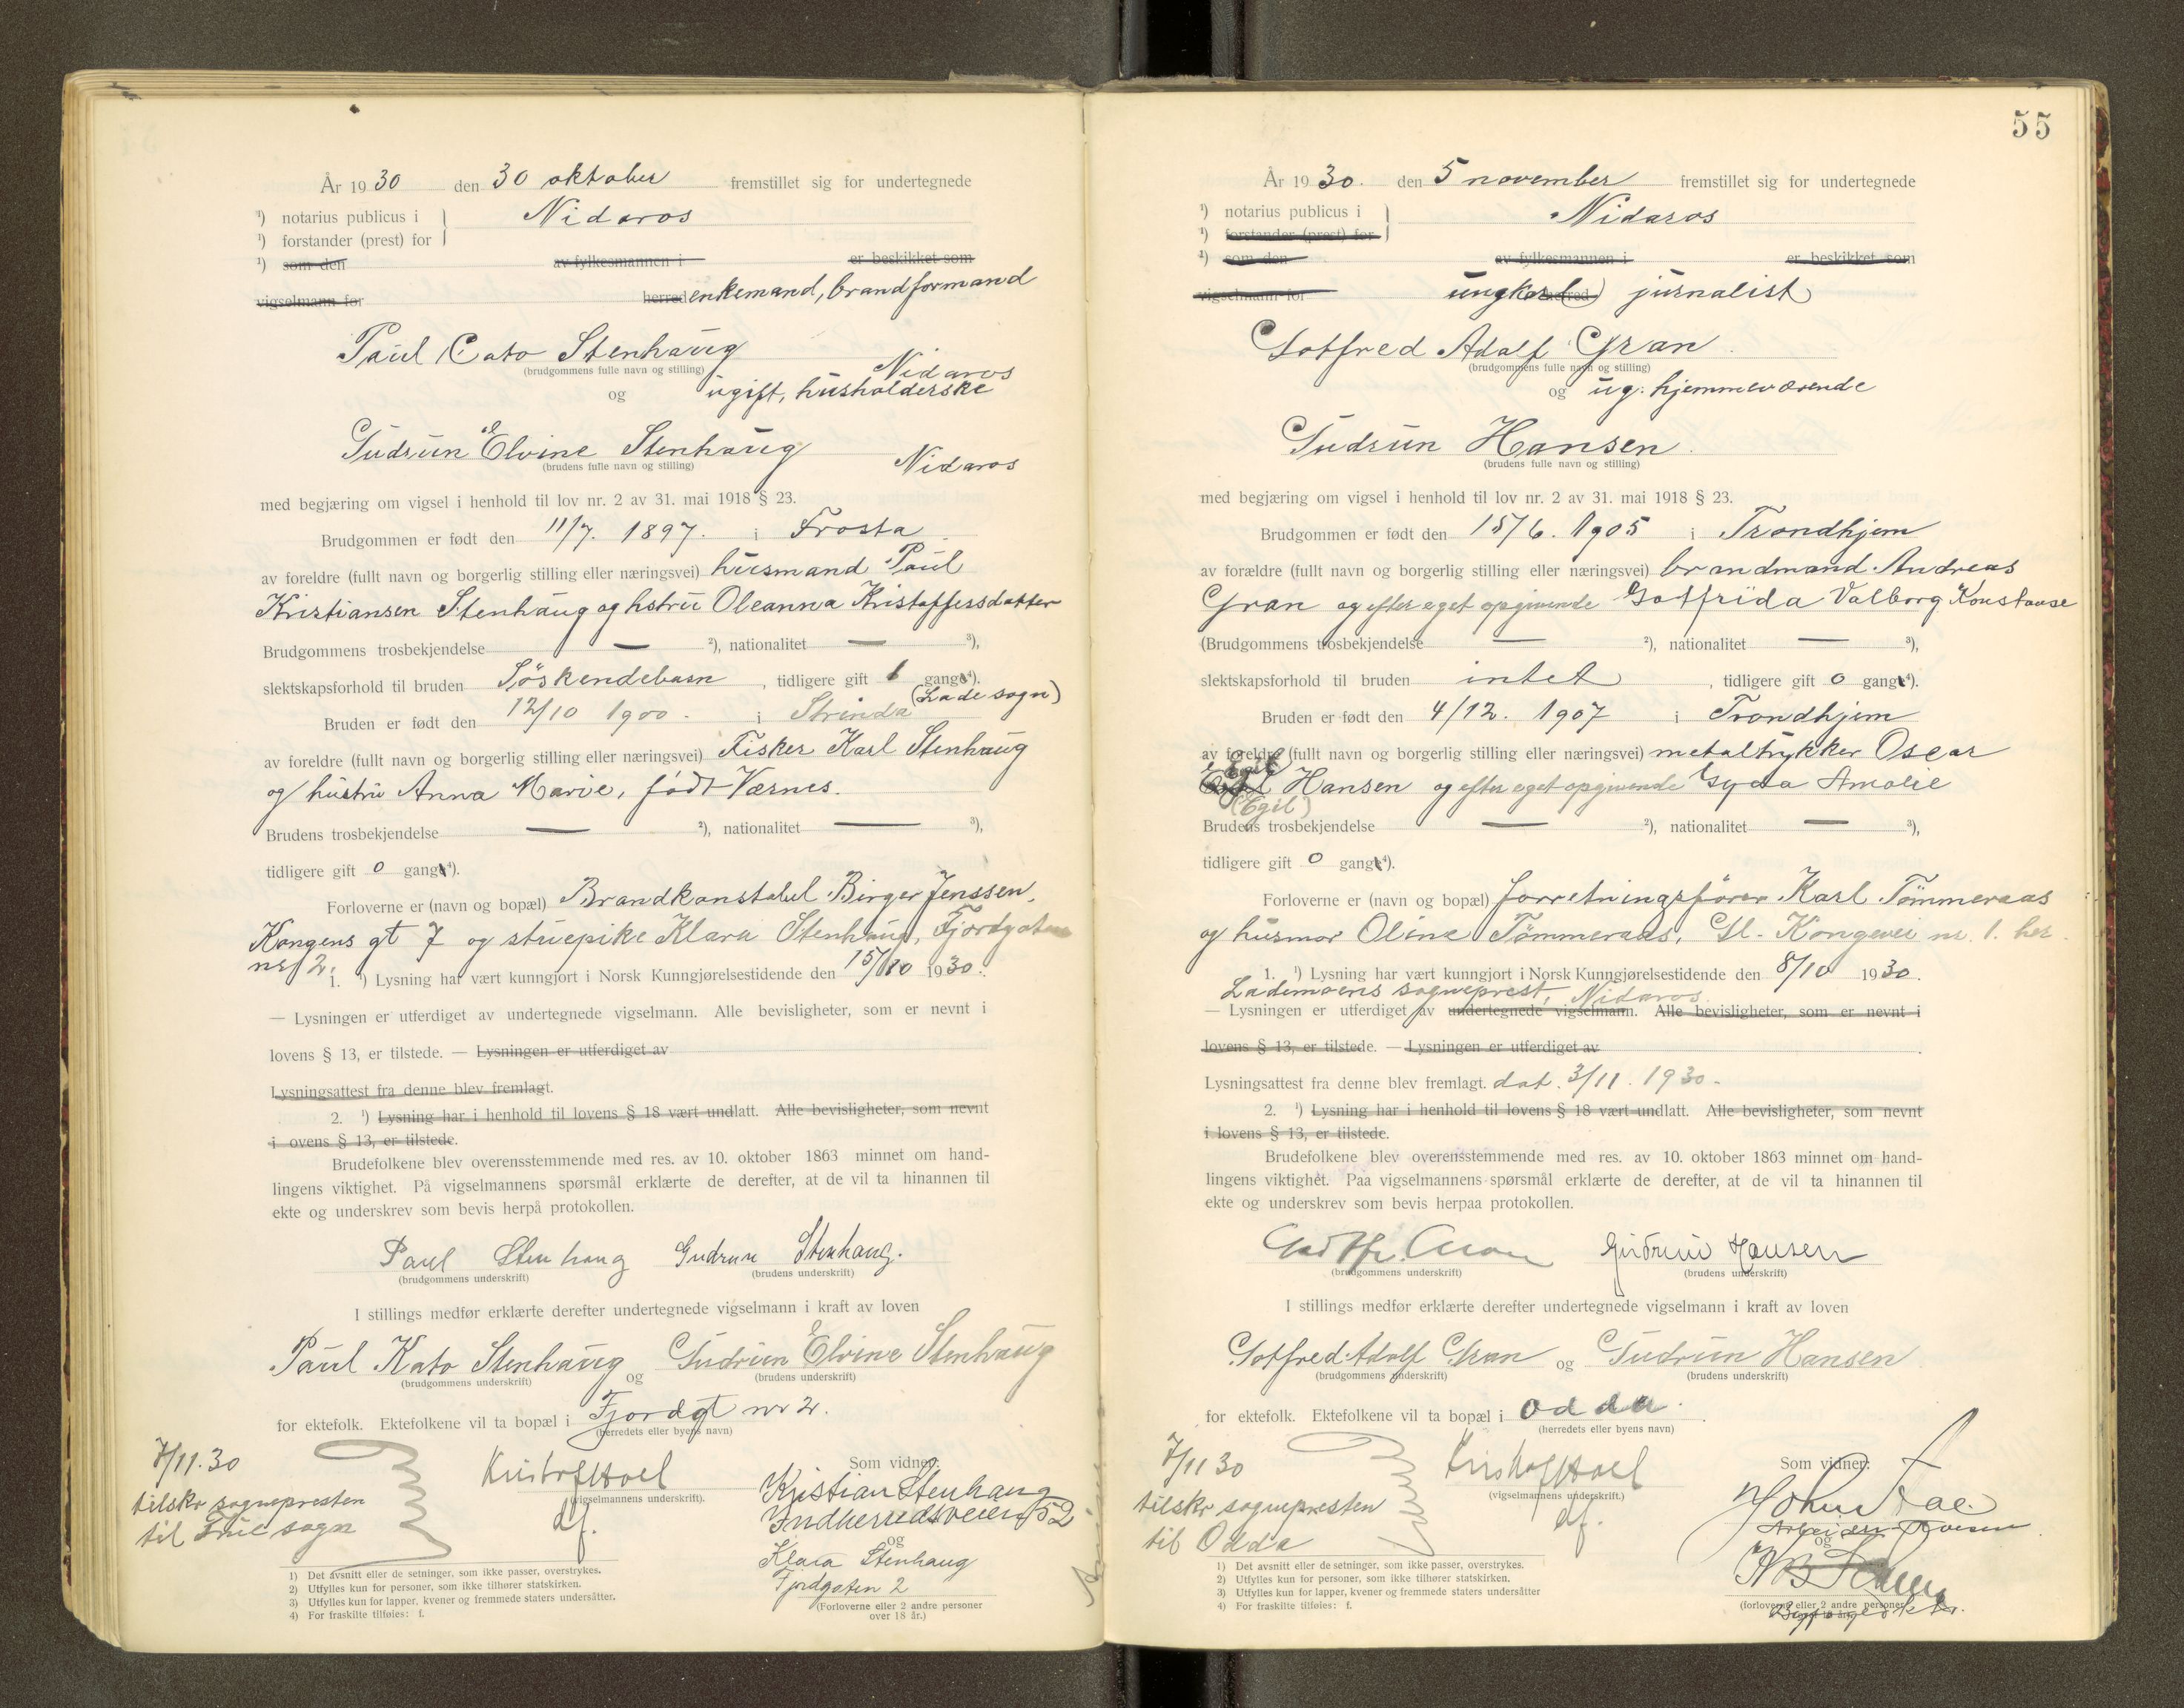 År 1930 den 30 oktober fremstillet sig for undertegnede
¹) notarius publicus i
Nidaros
¹) forstander (prest) for
¹) som den av fylkesmannen i er beskikket som
vigselmann for herred enkemand, brandformand
Paul Cato Stenhaug
(brudgommens fulle navn og stilling)
Nidaros
og ugift, husholderske
Gudrun Elvine Stenhaug
(brudens fulle navn og stilling)
Nidaros
med begjæring om vigsel i henhold til lov nr. 2 av 31. mai 1918 § 23.
Brudgommen er født den 11/7. 1897. i Frosta
av foreldre (fullt navn og borgerlig stilling eller næringsvei) husmand Paul
Kristiansen Stenhaug og hstru Oleanna Kristoffersdatter
Brudgommens trosbekjendelse — ²), nationalitet — ³),
slektskapsforhold til bruden Söskendebarn, tidligere gift 1 gang⁴).
(Lade sogn)
Bruden er født den 12/10 1900. i Strinda
av foreldre (fullt navn og borgerlig stilling eller næringsvei) Fisker Karl Stenhaug
og hustru Anna Marie, født Værnes.
Brudens trosbekjendelse — ²), nationalitet — ³),
tidligere gift 0 gang⁴).
Forloverne er (navn og bopæl) Brandkonstabel Birger Jenssen,
Kongens gt 7 og stuepike Klara Stenhaug, Fjordgaten
nr 2.
1. ¹) Lysning har vært kunngjort i Norsk Kunngjørelsestidende den 15/10 1930.
— Lysningen er utferdiget av undertegnede vigselmann. Alle bevisligheter, som er nevnt i
lovens § 13, er tilstede. — Lysningen er utferdiget av
Lysningsattest fra denne blev fremlagt.
2. ¹) Lysning har i henhold til lovens § 18 vært undlatt. Alle bevisligheter, som nevnt
i ovens § 13, er tilstede.
Brudefolkene blev overensstemmende med res. av 10. oktober 1863 minnet om hand-
lingens viktighet. På vigselmannens spørsmål erklærte de derefter, at de vil ta hinannen til
ekte og underskrev som bevis herpå protokollen.
Paul Stenhaug Gudrun Stenhaug.
(brudgommens underskrift) (brudens underskrift)
I stillings medfør erklærte derefter undertegnede vigselmann i kraft av loven
Paul Kato Stenhaug og Gudrun Elvine Stenhaug
(brudgommens underskrift) (brudens underskrift)
for ektefolk. Ektefolkene vil ta bopæl i Fjordgt nr 2.
(herredets eller byens navn)
7/11.30
tilskr sognepresten
til Frue sogn
Kristof Hoel
(vigselmannens underskrift).
df.
Som vidner:
Kristian Stenhaug
Indherredsveien 52
og
Klara Stenhaug
Fjordgaten 2
(Forloverne eller 2 andre personer
over 18 år.)
1) Det avsnitt eller de setninger, som ikke passer, overstrykes.
2) Utfylles kun for personer, som ikke tilhører statskirken.
3) Utfylles kun for lapper, kvener og fremmede staters undersåtter.
4) For fraskilte tilføies: f.
55
År 1930. den 5 november fremstillet sig for undertegnede
¹) notarius publicus i
Nidaros
¹) forstander (prest) for
¹) som den av fylkesmannen i er beskikket som
vigselmann for herred ungkarl) jurnalist
Gotfred Adolf Gran.
(brudgommens fulle navn og stilling)
og ug. hjemmeværende
Gudrun Hansen.
(brudens fulle navn og stilling)
med begjæring om vigsel i henhold til lov nr. 2 av 31. mai 1918 § 23.
Brudgommen er født den 15/6. 1905 i Trondhjem
av forældre (fullt navn og borgerlig stilling eller næringsvei) brandmand Andreas
Gran og efter eget opgivende Gotfrida Valborg Konstanse
(Brudgommens trosbekjendelse — ²), nationalitet — ³),
slektskapsforhold til bruden intet, tidligere gift 0 gang⁴).
Bruden er født den 4/12. 1907 i Trondhjem
av foreldre (fullt navn og borgerlig stilling eller næringsvei) metaltrykker Oscar
Egil
Hansen og efter eget opgivende Gyda Amalie
(Egil)
Brudens trosbekjendelse — ²), nationalitet — ³),
tidligere gift 0 gang⁴).
Forloverne er (navn og bopæl) forretningsfører Karl Tömmeraas
og husmor Oline Tömmeraas, Gl. Kongevei nr. 1. her.
1. ¹) Lysning har vært kunngjort i Norsk Kunngjørelsestidende den 8/10 1930.
Lademoens sogneprest, Nidaros.
— Lysningen er utferdiget av undertegnede vigselmann. Alle bevisligheter, som er nevnt i
lovens § 13, er tilstede. — Lysningen er utferdiget av
Lysningsattest fra denne blev fremlagt. dat. 3/11. 1930.
2. ¹) Lysning har i henhold til lovens § 18 vært undlatt. Alle bevisligheter, som nevnt
i lovens § 13, er tilstede.
Brudefolkene blev overensstemmende med res. av 10. oktober 1863 minnet om hand-
lingens viktighet. Paa vigselmannens spørsmål erklærte de derefter, at de vil ta hinannen til
ekte og underskrev som bevis herpaa protokollen.
Gottfr. Gran Gudrun Hansen
(brudgommens underskrift) (brudens underskrift)
I stillings medfør erklærte derefter undertegnede vigselmann i kraft av loven
Gotfred Adolf Gran og Gudrun Hansen
(brudgommens underskrift) (brudens underskrift)
for ektefolk. Ektefolkene vil ta bopæl i Odda.
(herredets eller byens navn)
7/11 30
tilskr sognepresten
til Odda
Kristof Hoel
(vigselmannens underskrift.)
df.
Som vidner:
John
og
(forloverne eller 2 andre personer
1) Det avsnitt eller de setninger, som ikke passer, overstrykes.
2) Utfylles kun for personer, som ikke tilhører statskirken.
3) Utfylles kun for lapper, kvener og fremmede staters undersåtter
4) For fraskilte tilføies: f.